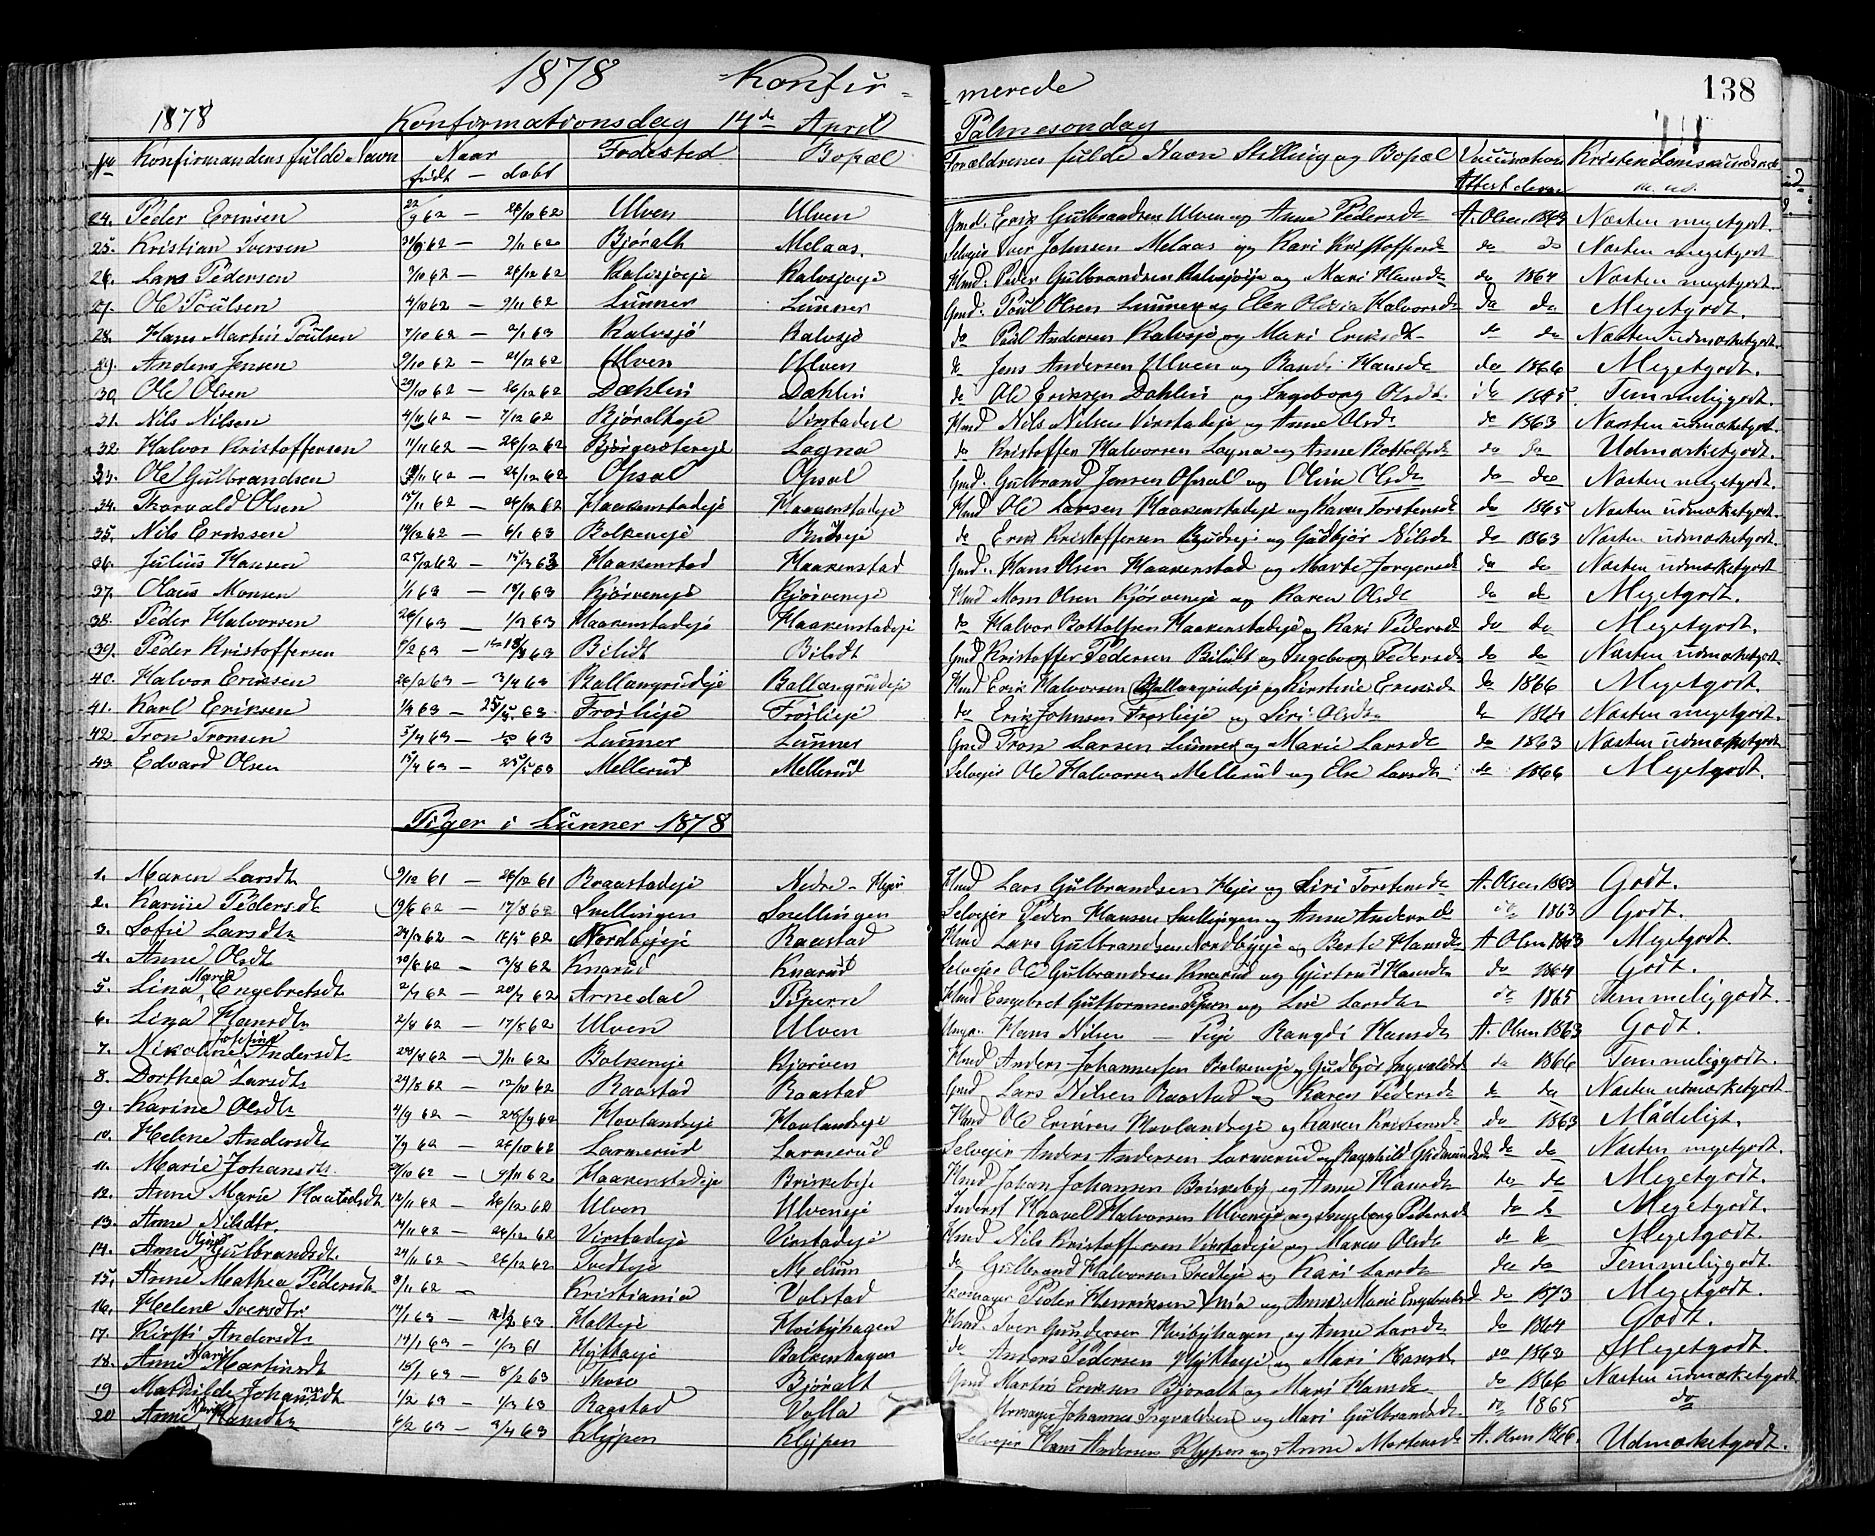 1878 Konfir- -merede 138
1878 Konfirmationsdag 14de April Palmesondag
No Konfirmandens fulde Navn Naar født - døbt Fødested Bopæl Forældrenes fulde Navn Stilling og Bopæl Vaccination Attest derom Kristendomskundskab m. m.
24. Peder Eriksen 22/9 62 — 26/10 62 Ulven Ulven Gmd. Erik Gulbrandsen Ulven og Anne Pedersdt A. Olsen 1863 Næsten megetgodt.
25. Kristian Iversen 62 — 9/11 62 Bjøralt Melaas. Selveier Iver Johnsen Melaas og Kari Kristoffersdt do do Næsten megetgodt
26. Lars Pedersen 7/10 62 — 26/12 62 Kalvsjøeje Kalvsjøeje Hmd: Peder Gulbrandsen Kalvsjøeje og Mari Hansdt do 1864 Næsten megetgodt.
27. Ole Poulsen 4/10 62 — 9/11 62 Lunner Lunner Gmd: Poul Olsen Lunner og Elen Olivia Halvorsdt do do Megetgodt.
28. Hans Martin Poulsen 7/10 62 — 2/1 63 Kalvsjø Kalvsjø do Paul Andersen Kalvsjø og Mari Eriksdt do do Næsten udmærketgodt.
29. Anders Jensen 9/10 62 — 21/12 62 Ulven Ulven do Jens Andersen Ulven og Randi Hansdt do 1866 Megetgodt.
30. Ole Olsen 29/10 62 — 26/12 62 Dæhlin Dæhlin do Ole Eriksen Dæhlin og Ingeborg Olsdt. do 1865. Temmeliggodt.
31. Nils Nilsen 4/11 62 — 7/12 62 Bjøralteje Virstadeje Hmd Nils Nilsen Virstadeje og Anne Olsdt do 1863 Næsten udmærketgodt.
32. Halvor Kristoffersen 11/11 62 — 26/12 62 Bjørgeseterejе Logna do Kristoffer Halvorsen Logna og Anne Bottolfsdt do do Udmærketgodt.
33. Ole Gulbrandsen /11 62 — 26/12 62 Opsal Opsal Gmd. Gulbrand Jensen Opsal og Oline Olsdt do do Næsten megetgodt.
34. Thorvald Olsen 15/11 62 — 26/12 62 Haakenstadeje Haakenstadeje Hmd Ole Larsen Haakenstadeje og Karen Torstensdt do 1865 Næsten udmærketgodt.
35. Nils Erikssen 14/12 62 — 6/1 63 Bolkeneje Budseje do Erik Kristoffersen Budseje og Gudbjør Nilsdt do 1863 Næsten udmærketgodt.
36. Julius Hansen 25/12 62 — 15/3 63 Haakenstad Haakenstad Gmd. Hans Olsen Haakenstad og Marte Jørgensdt do do Næsten udmærketgodt
37. Olaus Monsen 1/1 63 — 18/1 63 Kjørveneje Kjørveneje Hmd Mons Olsen Kjørveneje og Karen Olsdt do do Megetgodt.
38. Peder Halvorsen 26/1 63 — 1/3 63 Haakenstadeje Haakenstadeje do Halvor Bottolfsen Haakenstadeje og Kari Pedersdt do do Megetgodt.
39. Peder Kristoffersen 6/2 63 — 63 Bilidt Bilidt Gmd Kristoffer Pedersen Bilidt og Ingeborg Pedersdt do do Næsten udmærketgodt
40. Halvor Eriksen 26/2 63 — 3/4 63 Ballangrudeje Ballangrudeje Hmd Erik Halvorsen Ballangrudeje og Kirstine Eriksdt do 1866 Megetgodt.
41. Karl Eriksen 1/4 63 — 25/5 63 Frøslieje Frøslieje do Erik Johnsen Frøslieje og Siri Olsdt do 1864 Næsten megetgodt.
42. Tron Tronsen 5/4 63 — 63 Lunner Lunner Gmd Tron Larsen Lunner og Marie Larsdt do 1863 Næsten udmærketgodt
43. Edvard Olsen 13/4 63 — 25/5 63 Mellerud Mellerud Selveier Ole Halvorsen Mellerud og Else Larsdt do 1866 Megetgodt.
Piger i Lunner 1878
1. Maren Larsdt 9/12 61 — 26/12 61 Raastadeje Nedre - Hejer Hmd Lars Gulbrandsen Hejer og Siri Torstensdt A. Olsen 1863 Godt.
2. Karine Pedersdt 19/6 62 — 17/8 62 Snellingen Snellingen Selveier Peder Hansen Snellingen og Anne Andersdt do 1863 Godt.
3. Sofie Larsdt 24/3 62 — 18/5 62 Nordbyeje Raastad Hmd Lars Gulbrandsen Nordbyeje og Berte Hansdt A Olsen 1863 Megetgodt
4. Anne Olsdt 20/6 62 — 3/8 62 Knarud Knarud Selveier Ole Gulbrandsen Knarud og Gjertrud Hansdt do 1864 Godt.
5. Lina Maria Engebretsdt 2/7 62 — 20/7 62 Arnedal Piperud Hmd Engebret Guttormsen og Lise Larsdt do 1865 Temmeliggodt.
6. Lina Hansdt 2/8 62 — 17/8 62 Ulven Ulven Ungk. Hans Nilsen — Pige Rangdi Hansdt A. Olsen 1863 Godt.
7. Nikoline Josefine Andersdt 24/8 62 — 9/11 62 Bolkeneje Bjørven Hmd Anders Johannessen Bolkeneje og Gudbjør Ingvaldsdt do 1866 Temmeliggodt.
8. Dorthea Larsdt 29/8 62 — 12/10 62 Raastad Raastad Gmd Lars Nilsen Raastad og Karen Pedersdt do do Næsten udmærketgodt.
9. Karine Olsdt 4/9 62 — 28/9 62 Hovlandseje Hovlandseje Hmd Ole Eriksen Hovlandseje og Karen Kristensdt do 1863 Mådeligt.
10. Helene Andersdt 7/9 62 — 26/10 62 Larmerud Larmerud Selveier Anders Andersen Larmerud og Ragnhild Gudmundsdt do do Næsten megetgodt.
11. Marie Johansdt. 21/10 62 — 9/11 62 Haakenstadeje Briskebye Hmd Johan Johansen Briskeby og Anne Hansdt do do Megetgodt.
12. Anne Marie Haavelsdt 12/11 62 — 26/12 62 Ulven Ulveneje Inderst Haavel Halvorsen Ulveneje og Ingeborg Pedersdt do do Megetgodt.
13. Anne Nilsdtr. 14/11 62 — 26/12 62 Virstadeje Virstadeje Hmd Nils Kristoffersen Virstadeje og Maren Olsdt do do Megetgodt.
14. Anne Oline Gulbrandsdt. 24/11 62 — 26/12 62 Tvedteje Melum do Gulbrand Halvorsen Tvedteje og Kari Larsdt do do Temmeliggodt.
15. Anne Mathea Pedersdt 8/11 62 — Kristiania Volstad Skomager Peder Henriksen og Anne Marie Engebretsd do 1873 Megetgodt.
16. Helene Iversdtr 14/1 63 — 63 Halteje Hvibyhagen Hmd. Iver Gundersen Hvibyhagen og Anne Larsdt do 1864 Godt.
17. Kirsti Andersdt 14/1 63 — 1/3 61 Hytteeje Bolkenhagen do Anders Pedersen Hytteeje og Mari Hansdt do 1863 Megetgodt.
18. Anne Mari Martinsdt 15/1 63 — 8/2 63 Thoso Bjøralt Gmd Martin Eriksen Bjøralt og Mari Hansdt do 1866 Næsten udmærketgodt
19 Mathilde Johannesdt 1/2 63 — 1/3 63 Raastad Volla Urmager Johannes Ingvaldsen og Mari Gulbrandsdt do 1865 do
20 Anne Marie Hansdt 6/2 63 — 3/4 63 Klypen Klypen Selveier Hans Andersen Klypen og Anne Mortensdt A. Olsen 1866. Udmærketgodt.